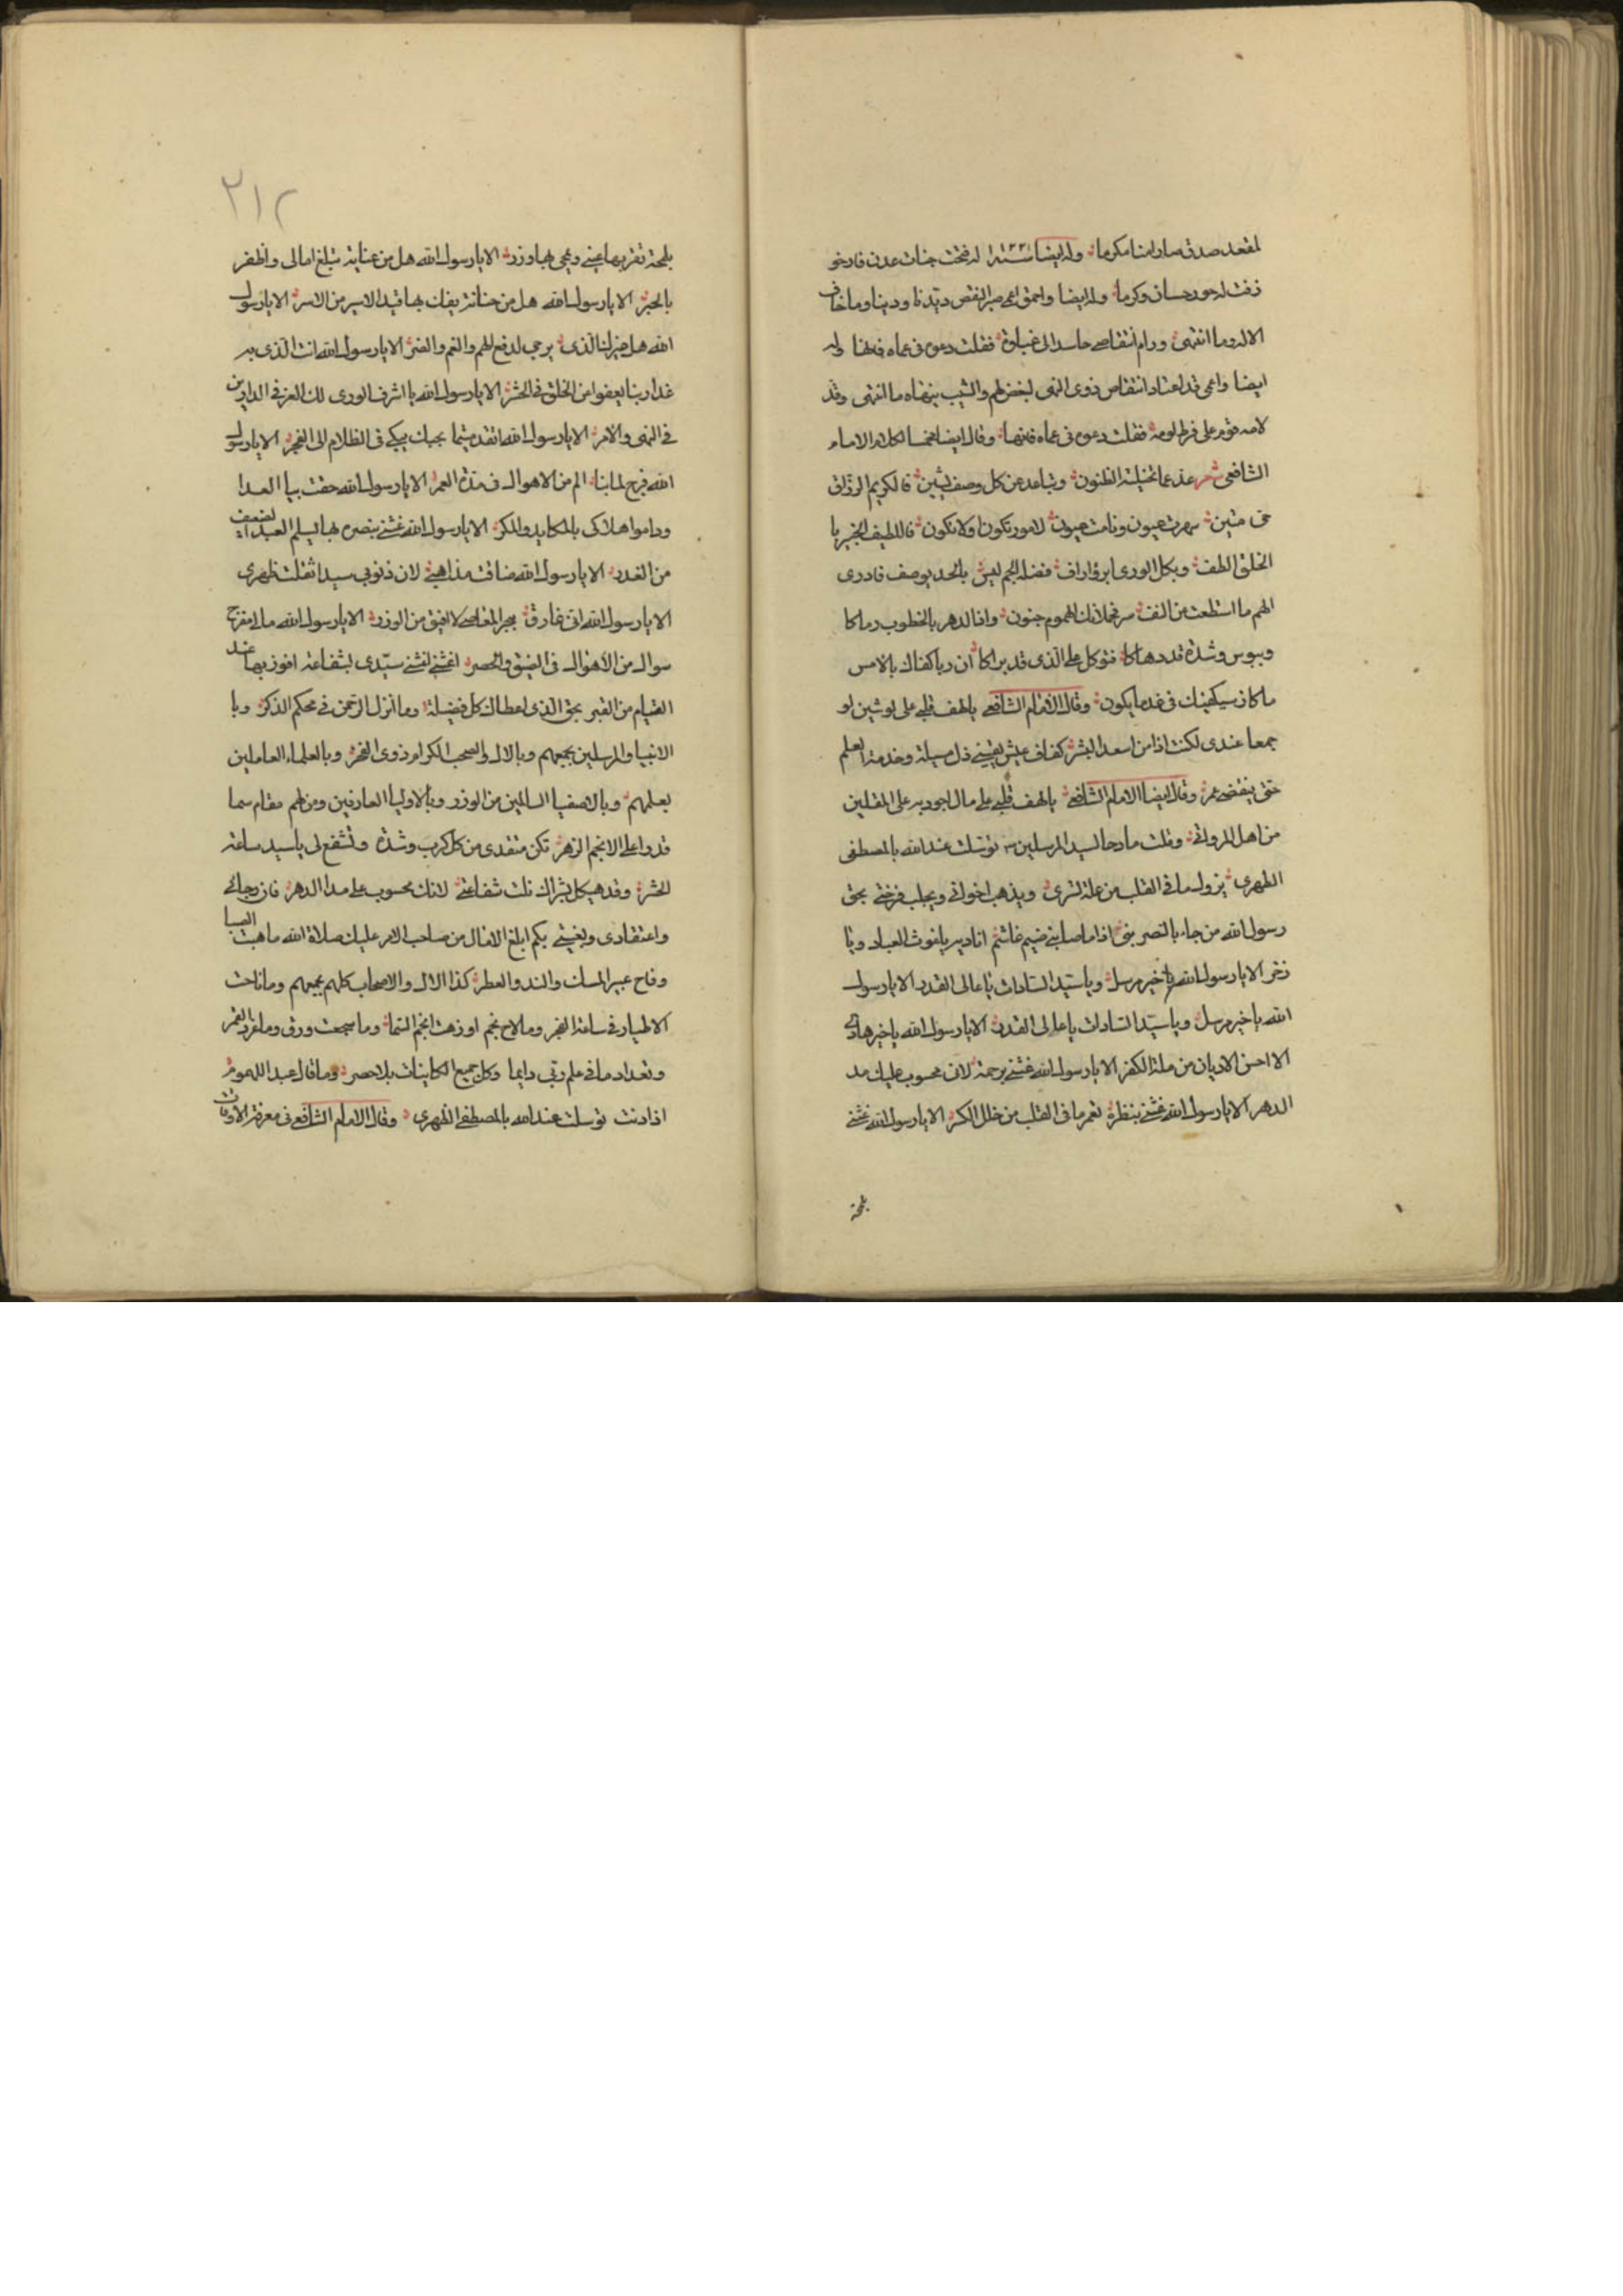 لمقعد صدق صار امنا مكرما وله ايضا سنة ١٢٣ له فتحت جنات عدن فارخو
زفت له حور حسان وكرما وله ايضا واحمق اعمى صير النقص ديدنا ودينا وما خاف
الاله وما انتهى ورام انتقاصى حاسدا لى غباوة فقلت دعوه فى عماه فانها وله
ايضا واعمى قد اعتاد انتقاص ذوى النهى لبغض لهم والشيب ينهاه ما انتهى وقد
لامه قوم على فرط لومه فقلت دعوه فى عماه فانها وقال ايضا مخمسا لكلام الامام
الشافعى شعر عد عما تخيلته الظنون وتباعد عن كل وصف يشين فالكريم الرزاق
حى متين سهرت عيون ونامت عيون لامور تكون او لا تكون فاللطيف الخبير با
الخلق الطف وبكل الورى ابر واراف فضله الجم ليس بالحد يوصف فادرى
الهم ما استطعت من النفس فحملانك الهموم جنون واذا الدهر بالخطوب رماكا
وببوس وشدة قد دهاكا فتوكل على الذى قد براكا ان ربا كفاك بالامس
ما كان سيكفيك فى غد ما يكون وقال الامام الشافعى يالهف قلبى على لو شين لو
جمعا عندى لكنت اذا من اسعد البشر كفاف عيش يقينى ذل مسيلة وخدمة العلم
حتى ينقضى عمر وقال ايضا الامام الشافعى يالهف قلبى على مال اجود به على المقلين
من اهل المرواة وقلت مادحا لسيد المرسلين توسلت عند الله بالمصطفى
الطهرى يزول ما فى القلب من علة تسرى ويذهب اخوانى ويجلب فرحتى بحق
رسول الله من جاء بالنصر بنى اذا ما صابنى ضيم غاشم اناديه ياغوث العباد ويا
ذخر الا يارسول الله يا خير مرسل وياسيد السادات يا عالى القدر الا يارسول
الله يا خير مرسل وياسيد السادات يا عالى القدر الا يارسول الله يا خير هادى
الا احسن الاديان من ملة الكفر الا يارسول الله غشنى برحمة لان محسوب عليك مد
الدهر الا يارسول الله غشنى بنظرة تعمر ما فى القلب من خلل الكسر الا يارسول الله غشنى
بلمحة
٢١٢
بلمحة تقر بها عينى وعى بها وزر الا يارسول الله هل من عناية تبلغ امالى واظفر
بالجبر الا يارسول الله هل من حنانة يفك بها قيد الاسير من الاسر الا يارسول
الله هل غيرك الذى يرجى لدفع الهم والغم والضر الا يارسول الله انت الذى به
غدا ربنا يعفوا عن الخلق فى الحشر الا يارسول الله يا اشرف الورى لك العز فى الدارين
فى النهى والامر الا يارسول الله انقد متيما بحبك يبكى فى الظلام الى الفجر الا يارسول
الله فرج لما بنا الم من الاهوال فى مدة العمر الا يارسول الله حفت بيا العدا
وراموا هلاكى بالمكايد والمكر الا يارسول الله غشنى بنصرة بها يسلم العبد الضعيف
من الغدر الا يارسول الله ضاقت مذاهبى لان ذنوبى سيدا ثقلت ظهرى
الا يارسول الله انى غارق ببحر المعاصى لا افيق من الوزر الا يارسول الله مالى مفرج
سواك من الاهوال فى الضيق والحصر اغشنى اغشنى سيدى بشفاعة افوز بها عند
القيام من القبر بحق الذى اعطاك كل فضيلة وما انزل الرحمن فى محكم الذكر وبا
الانبيا والمرسلين جميعهم وبالال والصحب الكرام ذوى الفخر وبالعلماء العاملين
بعلمهم وبالاصفيا السالمين من الوزر وبالاوليا العارفين ومن لهم مقام سما
قدرا على الانجم الزهر تكن منقدى من كل كرب وشدة وتشفع لى ياسيد ساعة
الحشر وقد هيكل بشراك نلت شفاعتى لانك محسوب على مدا الدهر فان رجائى
واعتقادى وبغيتى بكم ابلغ الامال من صاحب الامر عليك صلاة الله ما هبت الصبا
وفاح عبير المسك والند والعطر كذا الال والاصحاب كلهم جميعهم وما ناحت
الاطيار فى ساعة الفجر وما لاح نجم او زهت انجم السما وما سجعت ورق وما غرد القمر
وتعداد ما فى علم ربى دايما وكل جميع الكاينات بلا حصر وما قال عبد اللهموم
اذا دنت توسلت عند الله بالمصطفى الطهرى وقال الامام الشافعى فى معرفة الاوقات